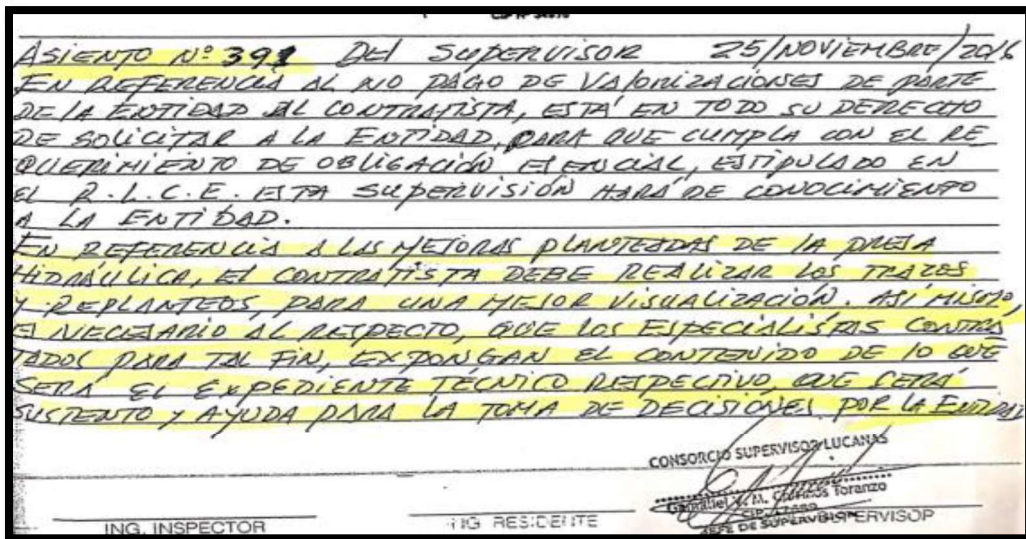 ASIENTO Nº 391 DEL SUPERVISOR 25/NOVIEMBRE/2016
EN REFERENCIA AL NO PAGO DE VALORIZACIONES DE PARTE
DE LA ENTIDAD AL CONTRATISTA, ESTÁ EN TODO SU DERECHO
DE SOLICITAR A LA ENTIDAD, PARA QUE CUMPLA CON EL RE_
QUERIMIENTO DE OBLIGACIÓN ESENCIAL, ESTIPULADO EN
EL R.L.C.E. ESTA SUPERVISIÓN HARÁ DE CONOCIMIENTO
A LA ENTIDAD.
EN REFERENCIA A LAS MEJORAS PLANTEADAS DE LA PRESA
HIDRÁULICA, EL CONTRATISTA DEBE REALIZAR LOS TRAZOS
Y REPLANTEOS, PARA UNA MEJOR VISUALIZACIÓN. ASÍ MISMO,
ES NECESARIO AL RESPECTO, QUE LOS ESPECIALISTAS CONTRA
TADOS PARA TAL FIN, EXPONGAN EL CONTENIDO DE LO QUE
SERÁ EL EXPEDIENTE TÉCNICO RESPECTIVO, QUE SERÁ
SUSTENTO Y AYUDA PARA LA TOMA DE DECISIONES POR LA ENTIDAD
CONSORCIO SUPERVISOR LUCANAS
Toranzo
JEFE DE SUPERVISION
ING. INSPECTOR
ING RESIDENTE